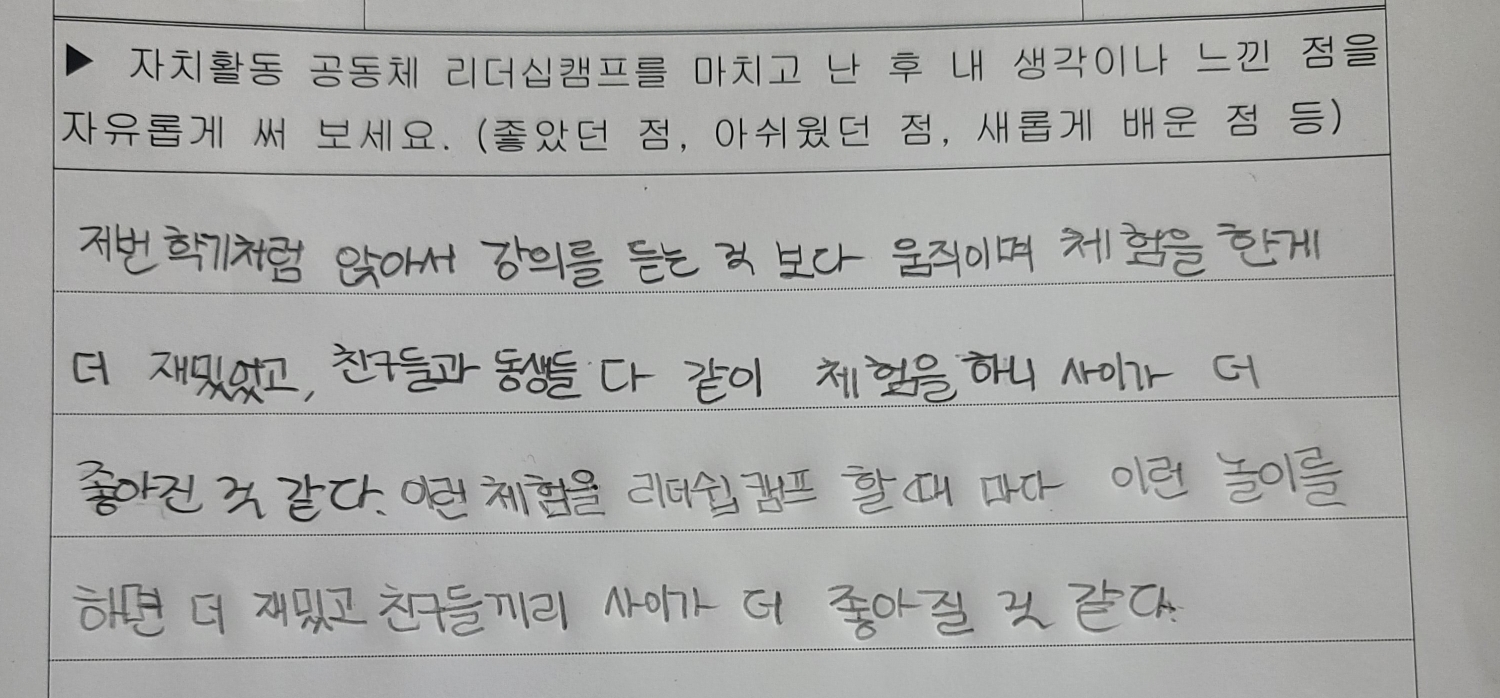 ▶ 자치활동 공동체 리더십캠프를 마치고 난 후 내 생각이나 느낀 점을
자유롭게 써 보세요. (좋았던 점, 아쉬웠던 점, 새롭게 배운 점 등)
저번 학기처럼 앉아서 강의를 듣는 것 보다 움직이며 체험을 한게
더 재밌었고, 친구들과 동생들 다 같이 체험을 하니 사이가 더
좋아진 것 같다. 이런 체험을 리더쉽캠프 할 때 마다 이런 놀이를
하면 더 재밌고 친구들끼리 사이가 더 좋아질 것 같다.